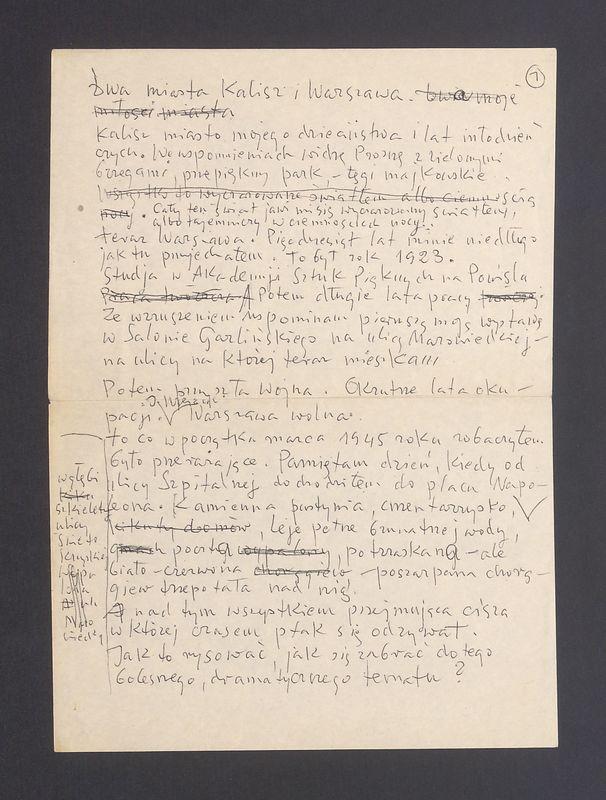 1
Dwa miasta Kalisz i Warszawa. Dwa moje
miłości miasta
Kalisz miasto mojego dzieciństwa i lat młodzień
czych. We wspomnieniach widzę Prosnę z zielonymi
brzegami, przepiękny park, – łęgi majkowskie.
Wszystko to wyczarowane światłem albo ciemnością
nocy. Cały ten świat jawi mi się wyczarowany światłem,
albo tajemniczy w ciemnościach nocy.
teraz Warszawa. Pięćdziesiąt lat minie niedługo
jak tu przyjechałem. To był rok 1923.
Studja w Akademji Sztuk Pięknych na Powiślu
Praca twórcza A Potem długie lata pracy
Ze wzruszeniem wspominam pierwszą moją wystawę
w Salonie Garlińskiego na ulicy Mazowieckiej –
na ulicy na której teraz mieszkam
Potem przyszła wojna. Okrutne lata oku –
pacji. Warszawa wolna.
to co w początka marca 1945 roku zobaczyłem
było przerażające. Pamiętam dzień, kiedy od
ulicy Szpitalnej dochodziłem do placu Napo –
leona. Kamienna pustynia, cmentarzysko,
kikuty domów, leje pełne brunatnej wody,
gmach poczty wypalony, potrzaskana – ale
biało – czerwona chorągiew – poszarpana chorą –
giew trzepotała nad nią.
A nad tym wszystkiem przejmująca cisza
w której czasem ptak się odzywał.
Jak to rysować, jak się zabrać do tego
bolesnego, dramatycznego tematu?
w głębi
szkielety
ulicy
Święto
krzyskiej